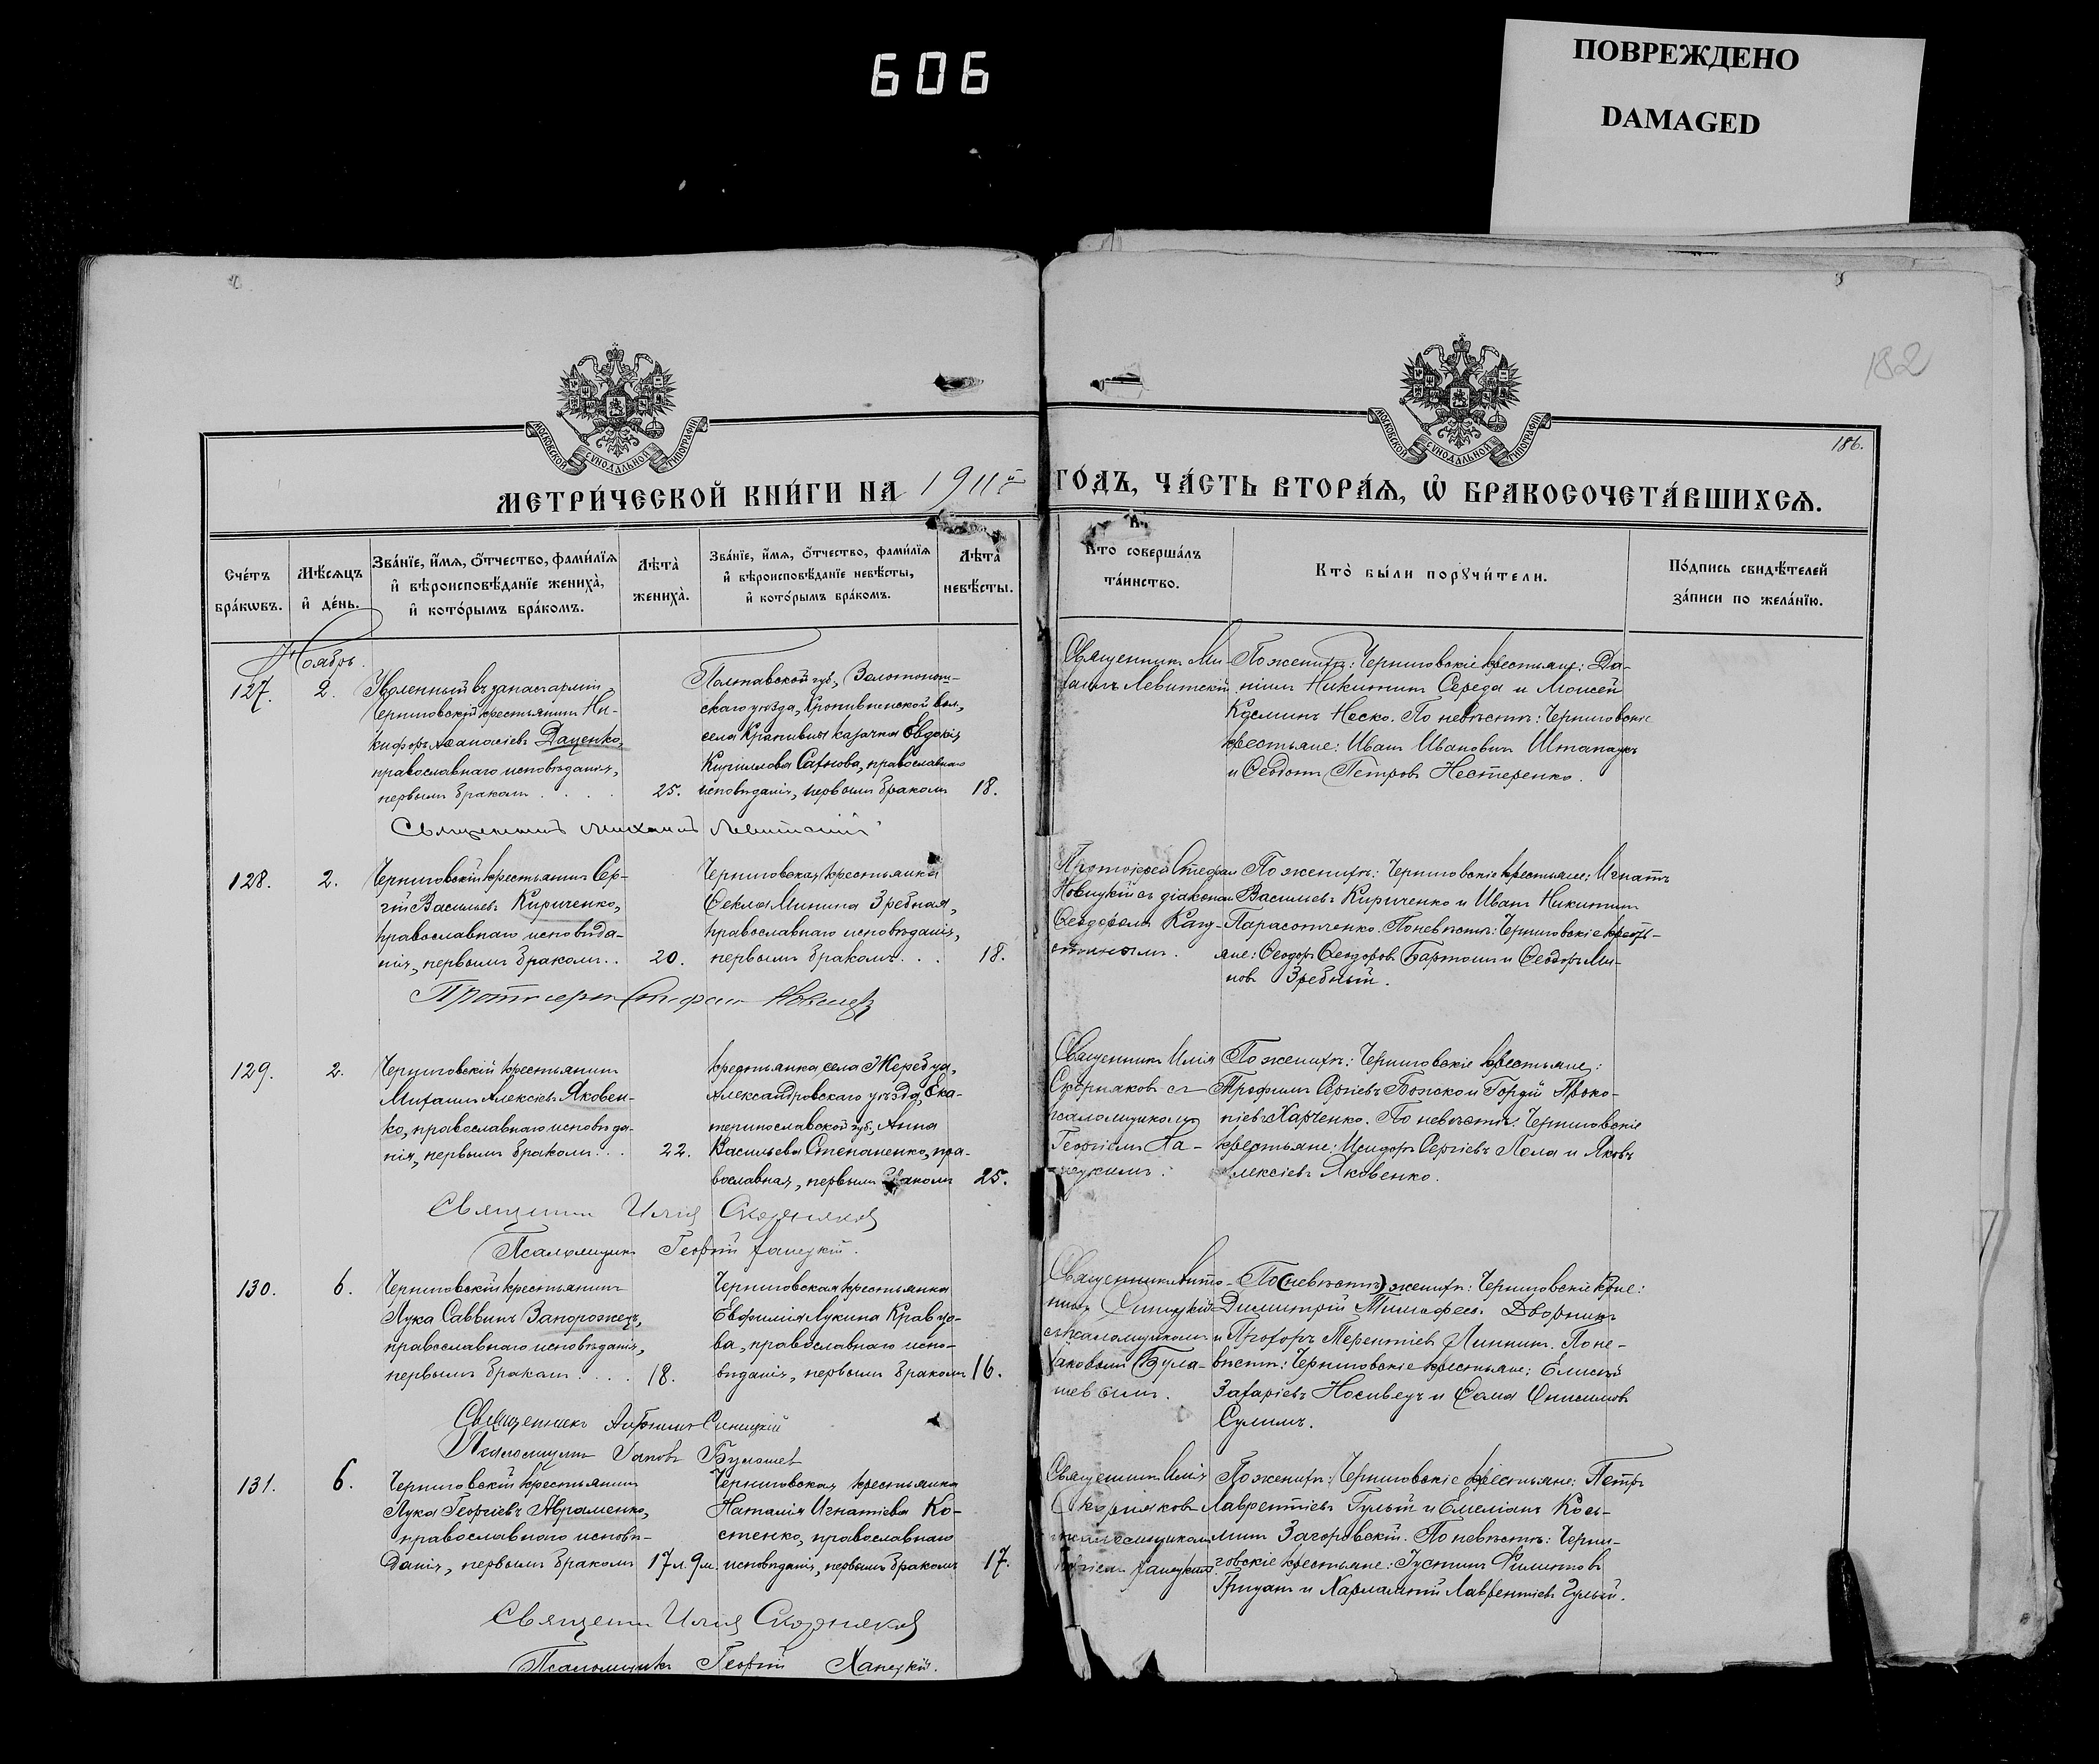 606
ПОВРЕЖДЕНО
DAMAGED
182
186.
МОСКОВСКОЙ СѴНОДАЛЬНОЙ ТИПОГРАФІИ
МОСКОВСКОЙ СѴНОДАЛЬНОЙ ТИПОГРАФІИ
МЕТРИ́ЧЕСКОЙ КНИ́ГИ НА 1911й ГО́ДЪ, ЧА́СТЬ ВТОРА́Ѧ, Ѡ҆ БРАКОСОЧЕТА́ВШИХСѦ.
Сче́тъ бра́кѡвъ.
Мѣ́сяцъ и҆ де́нь.
Зва́нїе, и҆́мѧ, ѻ҆́тчество, фами́лїѧ и҆ вѣроисповѣ́данїе жениха̀, и҆ кото́рымъ бра́комъ.
Лѣта̀ жениха̀.
Зва́нїе, и҆́мѧ, ѻ҆́тчество, фами́лїѧ и҆ вѣроисповѣ́данїе невѣ́сты, и҆ кото́рымъ бра́комъ.
Лѣта̀ невѣ́сты.
Кто̀ соверша́лъ та́инство.
Кто̀ бы́ли порꙋчи́тели.
По́дпись свидѣ́телей за́писи по жела́нїю.
Ноябрь.
127.
2.
Уволенный въ запас арміи
Черниговскій крестьянинъ Ни-
кифоръ Аѳанасіевъ Даценко,
православнаго исповѣданія,
первымъ бракомъ . . . .
25.
Полтавской губ., Золотонош-
скаго уѣзда, Кропивненской вол.,
села Крапивны казачка Евдокія
Кириллова Сахнова, православнаго
исповѣданія, первымъ бракомъ
18.
Священникъ Ми-
хаилъ Левитскій.
По женихѣ: Черниговскіе крестьяне: Да-
ніилъ Никитинъ Середа и Моисей
Косминъ Неско. По невѣстѣ: Черниговскіе
крестьяне: Иванъ Ивановъ
и Ѳеодотъ Петровъ Нестеренко.
Священникъ Михаилъ Левитскій
128.
2.
Черниговскій крестьянинъ Сер-
гій Васильевъ Кириченко,
православнаго исповѣда-
нія, первымъ бракомъ. .
20.
Черниговская крестьянка
Ѳекла Минина Зребная,
православнаго исповѣданія,
первымъ бракомъ. . .
18.
Протоіерей Стефан
Новицкій съ діаконом
Ѳеодоромъ
По женихѣ: Черниговскіе крестьяне: Игнатъ
Васильевъ Кириченко и Иванъ Никитинъ
Парасотченко. По невѣстѣ: Черниговскіе кресть-
яне: Ѳеодоръ Ѳеодоровъ Бартошъ и Ѳеодоръ Ми-
новъ Зребный.
Протоіерей Стефан Новицкій
129.
2.
Черниговскій крестьянинъ
Михаилъ Алексіевъ Яковен-
ко, православнаго исповѣда-
нія, первымъ бракомъ. .
22.
крестьянка села Жеребца,
Александровскаго уѣзда, Ека-
теринославской губ., Анна
Васильева Степаненко, пра-
вославная, первымъ бракомъ
25.
Священникъ Илія
Скорняковъ съ
псаломщикомъ
Георгіемъ Ха-
нецкимъ.
По женихѣ: Черниговскіе крестьяне:
Трофимъ Сергіевъ Божско и Гордій Проко-
піевъ Харченко. По невѣстѣ: Черниговскіе
крестьяне: Исидоръ Сергіевъ Лола и Яковъ
Алексіевъ Яковенко.
Священникъ Илія Скорняковъ
Псаломщикъ Георгій Ханецкій.
130.
6.
Черниговскій крестьянинъ
Лука Саввинъ Запорожецъ,
православнаго исповѣданія,
первымъ бракомъ . . . .
18.
Черниговская крестьянка
Евфимія Лукина Кравцо-
ва, православнаго испо-
вѣданія, первымъ бракомъ
16.
Священникъ Анто-
ній Синицкій
съ псаломщикомъ
Іаковомъ Була-
шевымъ.
По (невѣстѣ) женихѣ: Черниговскіе кр-не:
Димитрій Тимофеев Дворникъ
и Прохоръ Терентіевъ Линникъ. По не-
вѣстѣ: Черниговскіе крестьяне: Елисей
Захаріевъ Носивецъ и Ѳома Онисимовъ
Сулимъ.
Священникъ Антоній Синицкій
Псаломщикъ Іаковъ Булашев
131.
6.
Черниговскій крестьянинъ
Лука Георгіевъ Авраменко,
православнаго исповѣ-
данія, первымъ бракомъ
17 л. 9 м.
Черниговская крестьянка
Наталія Игнатіева Ко-
стенко, православнаго
исповѣданія, первымъ бракомъ
17.
Священникъ Илія
Скорняковъ
псаломщикомъ
Георгіемъ Ханецкимъ
По женихѣ: Черниговскіе крестьяне: Петръ
Лаврентіевъ Гулый и Емеліанъ Кось-
минъ Загоровскій. По невѣстѣ: Черни-
говскіе крестьяне: Іустинъ Филиповъ
Грицанъ и Харлампій Лаврентіевъ Гулый.
Священникъ Илія Скорняковъ
Псаломщикъ Георгій Ханецкій.